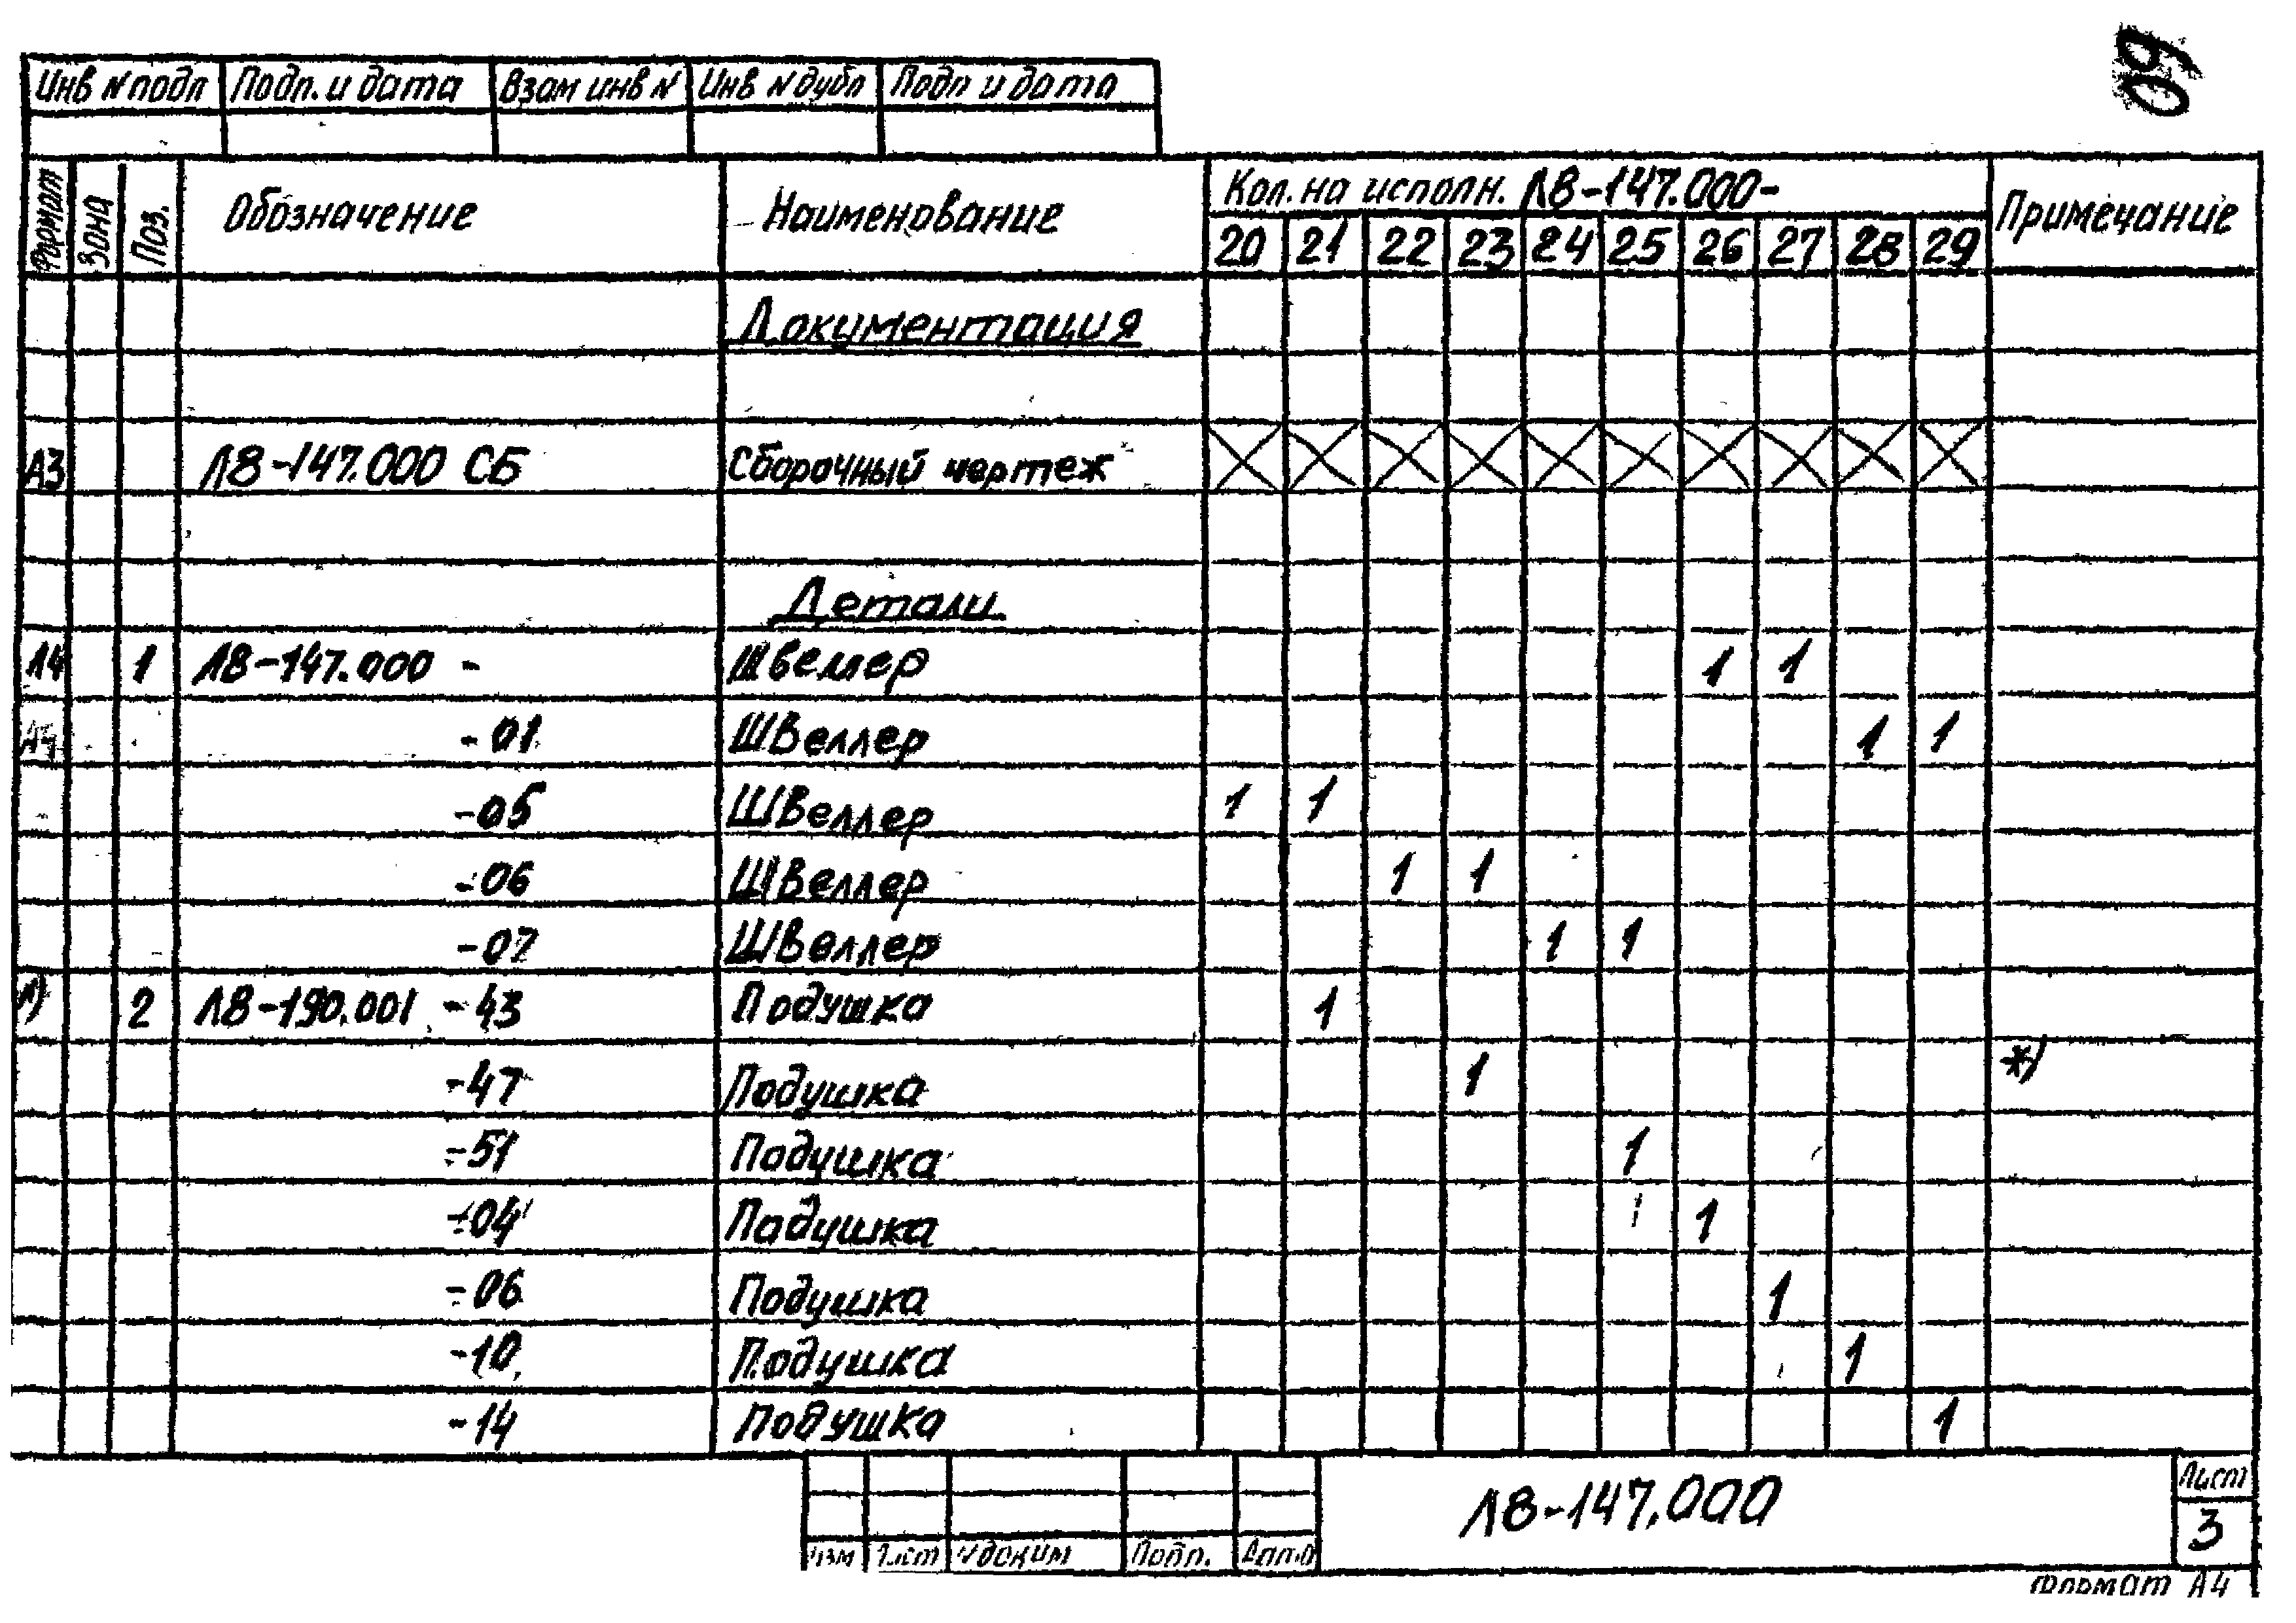 60
Инв N подл Подп. и дата Взам инв N Инв N дубл Подп и дата
Формат Зона Поз. Обозначение Наименование Кол. на исполн. Л8-147.000- Примечание
20 21 22 23 24 25 26 27 28 29
Документация
А3 Л8-147.000 СБ Сборочный чертеж
Детали
А4 1 Л8-147.000 - Швеллер 1 1
А4 -01 Швеллер 1 1
-05 Швеллер 1 1
-06 Швеллер 1 1
-07 Швеллер 1 1
2 Л8-190.001 -43 Подушка 1
-47 Подушка 1 *)
-51 Подушка 1
-04 Подушка 1
-06 Подушка 1
-10 Подушка 1
-14 Подушка 1
Л8-147.000
Лист
3
Изм Лист N докум Подп. Дата
Формат А4